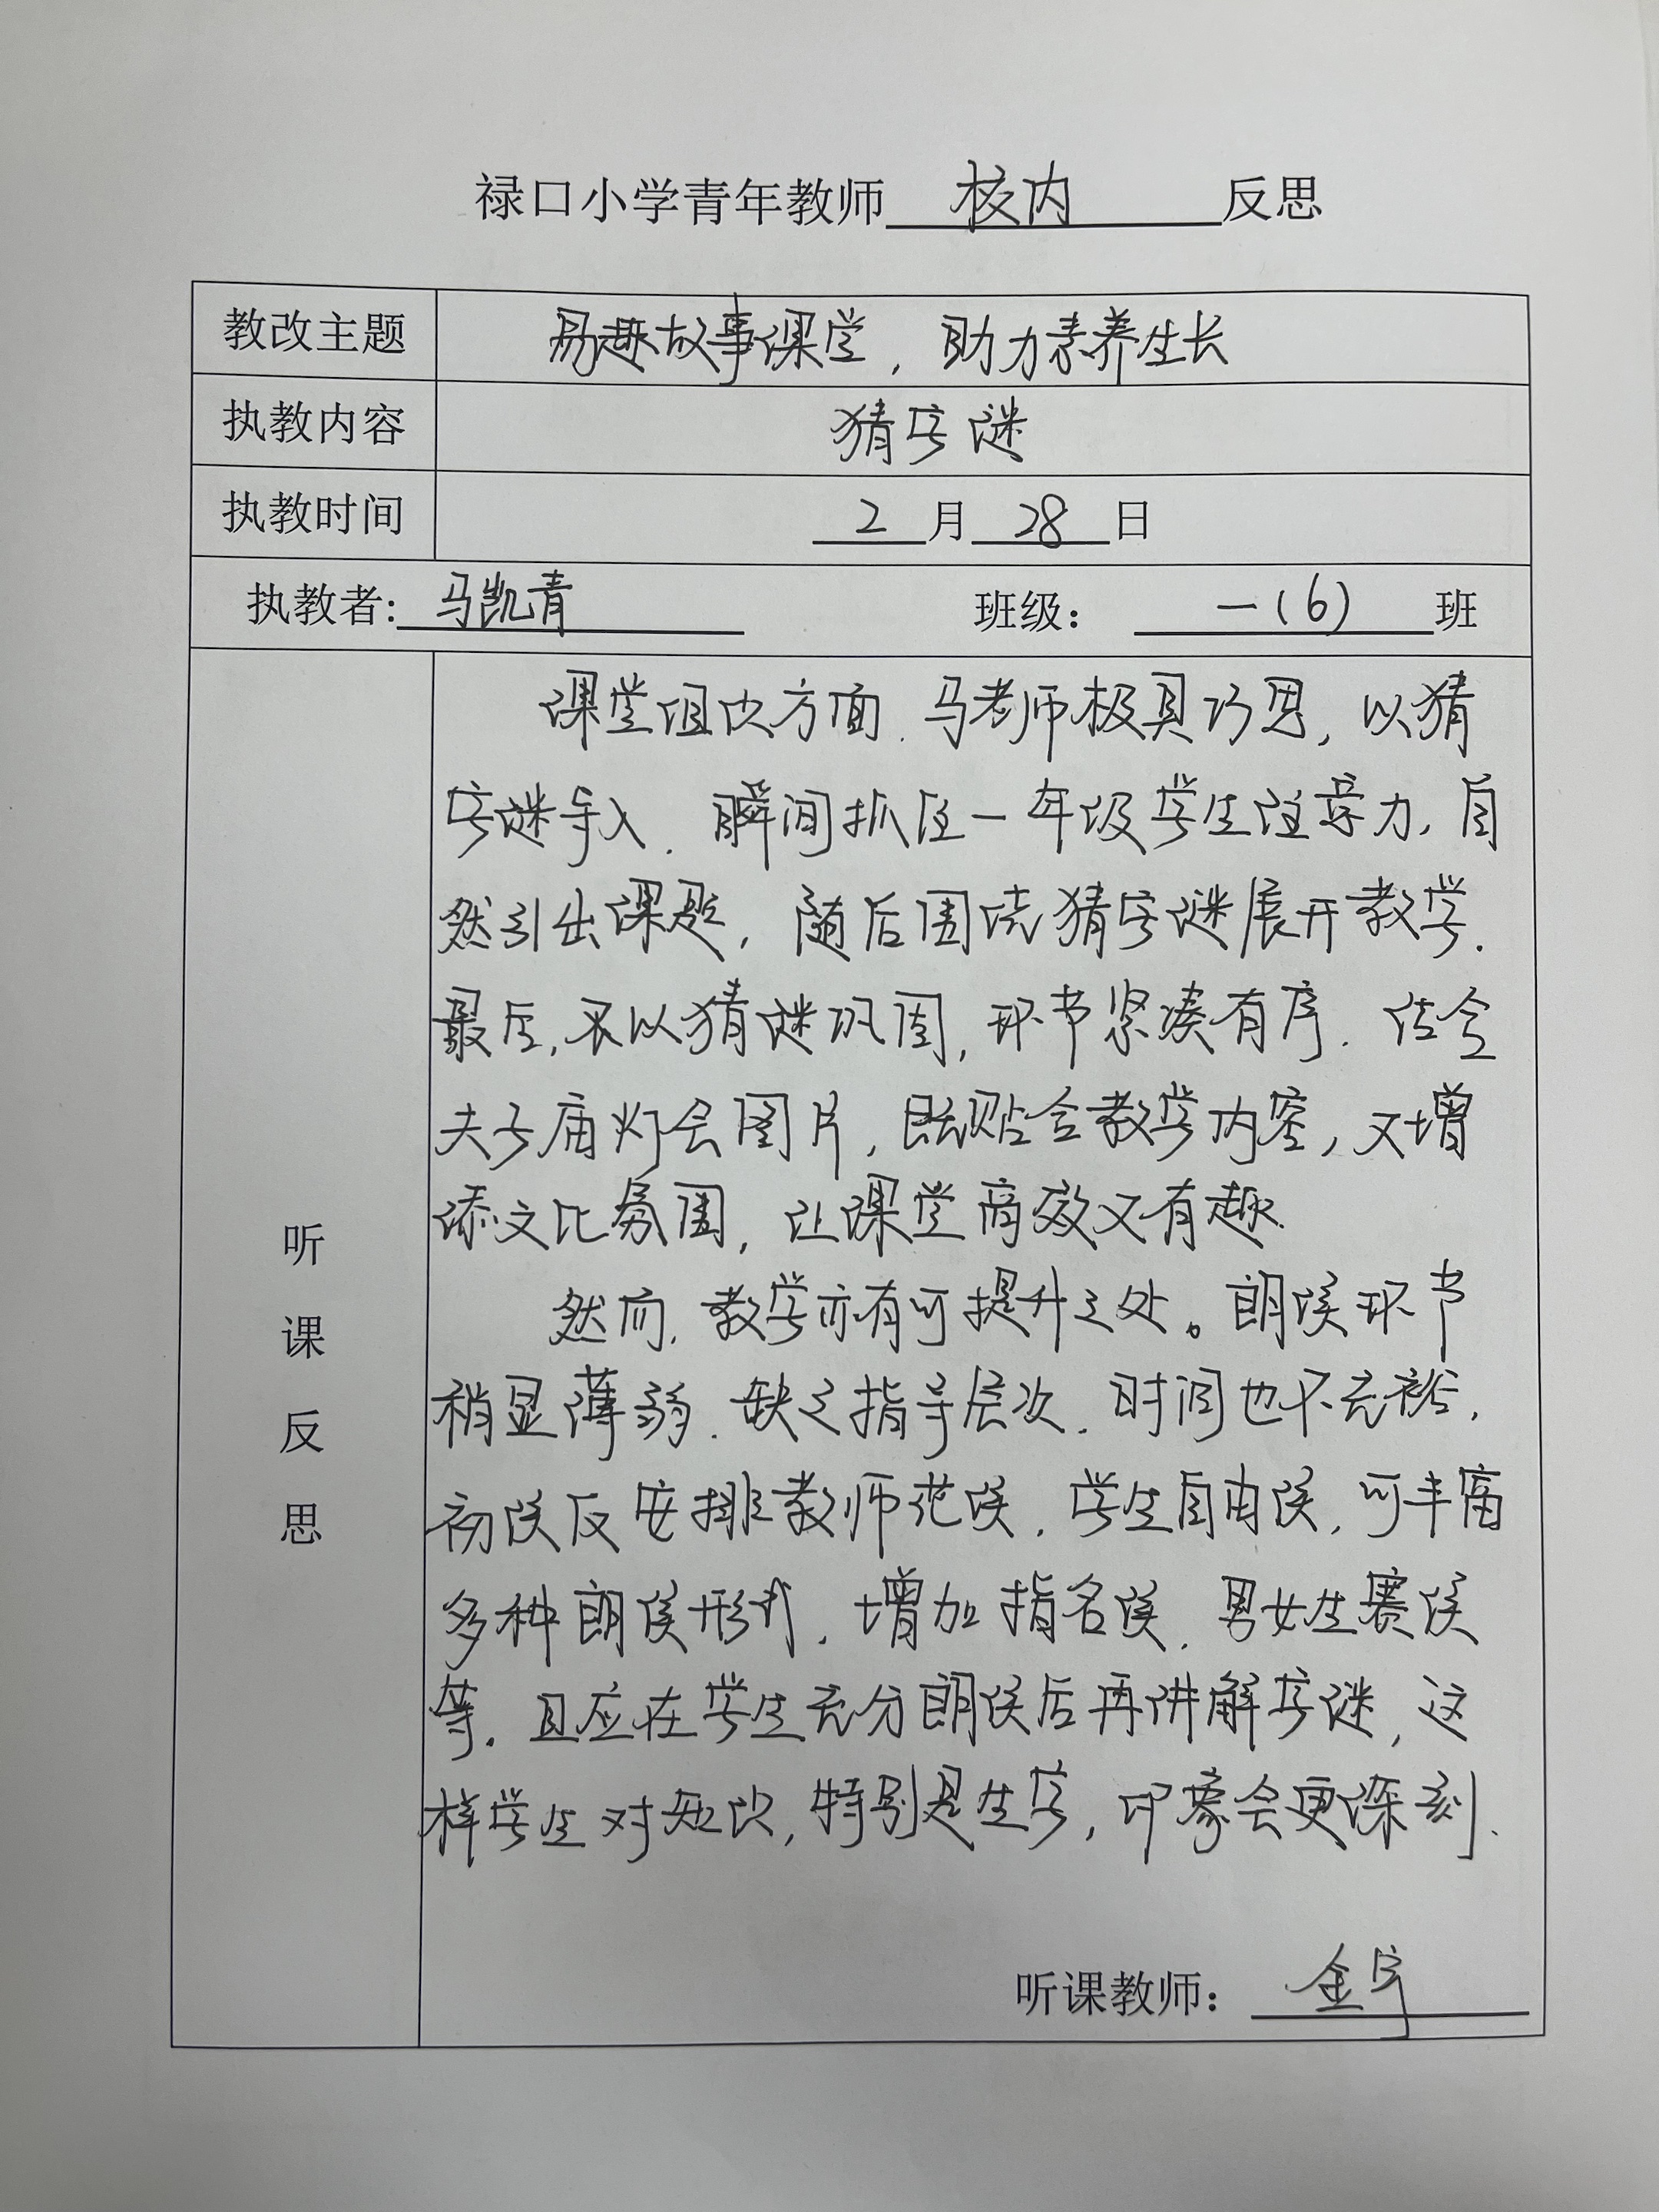 禄口小学青年教师 校内 反思
教改主题 易趣故事课堂，助力素养生长
执教内容 猜字谜
执教时间 2月28日
执教者：马凯青 班级：一（6）班
听课反思
课堂组织方面，马老师极具巧思，以猜
字谜导入，瞬间抓住一年级学生注意力，自
然引出课题，随后围绕猜字谜展开教学，
最后，又以猜谜巩固，环节紧凑有序，结合
夫子庙灯会图片，既贴合教学内容，又增
添文化氛围，让课堂高效又有趣。
然而，教学亦有可提升之处。朗读环节
稍显薄弱，缺乏指导层次，时间也不充裕，
初读仅安排教师范读，学生自由读，可丰富
多种朗读形式，增加指名读，男女生赛读
等，且应在学生充分朗读后再讲解字谜，这
样学生对知识，特别是生字，印象会更深刻。
听课教师：金宇